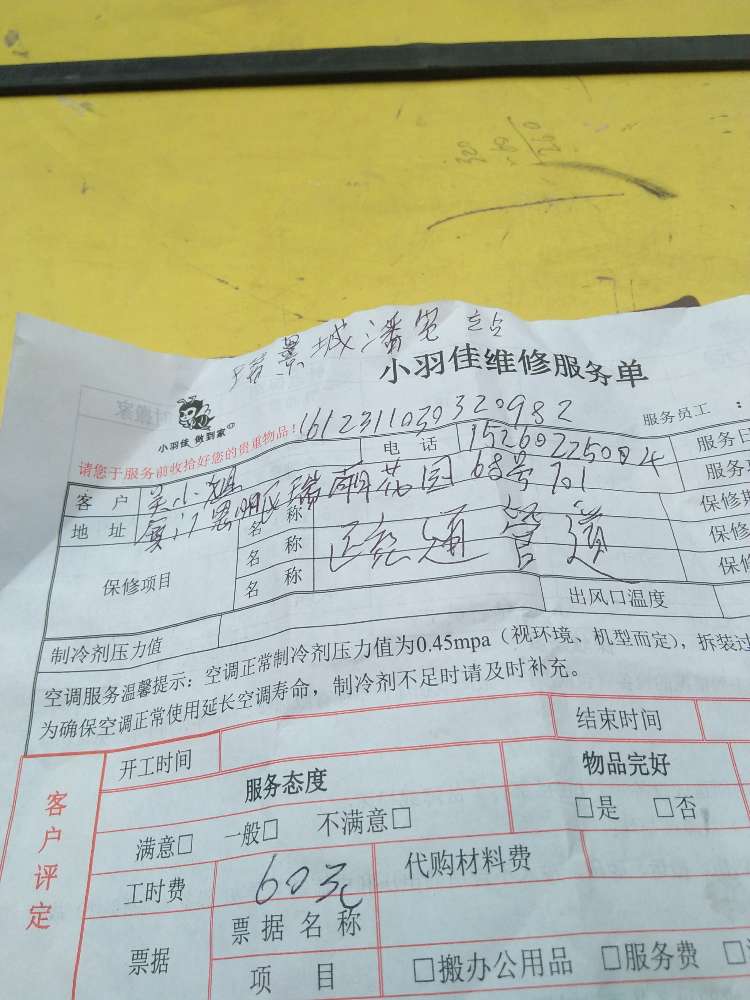 320
60
260
瑞景城潘宅 站
小羽佳维修服务单
小羽佳 做到家
1612311030320982
服务员工：
请您于服务前收拾好您的贵重物品！
电 话 15260225084
服务日
客 户 吴小姐
服务
地 址 厦门思明区瑞朝花园68号701
名 称
保修期
保修项目
名 称 疏通管道
保修
名 称
保修
制冷剂压力值
出风口温度
空调服务温馨提示：空调正常制冷剂压力值为0.45mpa（视环境、机型而定），拆装过
为确保空调正常使用延长空调寿命，制冷剂不足时请及时补充。
客户评定
开工时间
结束时间
服务态度
物品完好
满意□ 一般□ 不满意□
□是 □否
工时费 60元
代购材料费
票据
票 据 名 称
项 目
□搬办公用品 □服务费 □